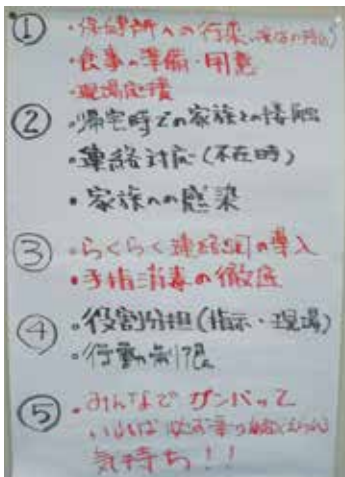 ① ・保健所への行来
・食事の準備・用意
・現場応援
② ・帰宅時での家族との接触
・連絡対応(不在時)
・家族への感染
③ ・らくらく連絡網の導入
・手指消毒の徹底
④ ・役割分担(指示・現場)
・行動制限
⑤ ・みんなでガンバって
気持ち!!